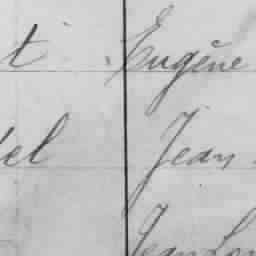 t Eugène
el Jean
Jean Lou